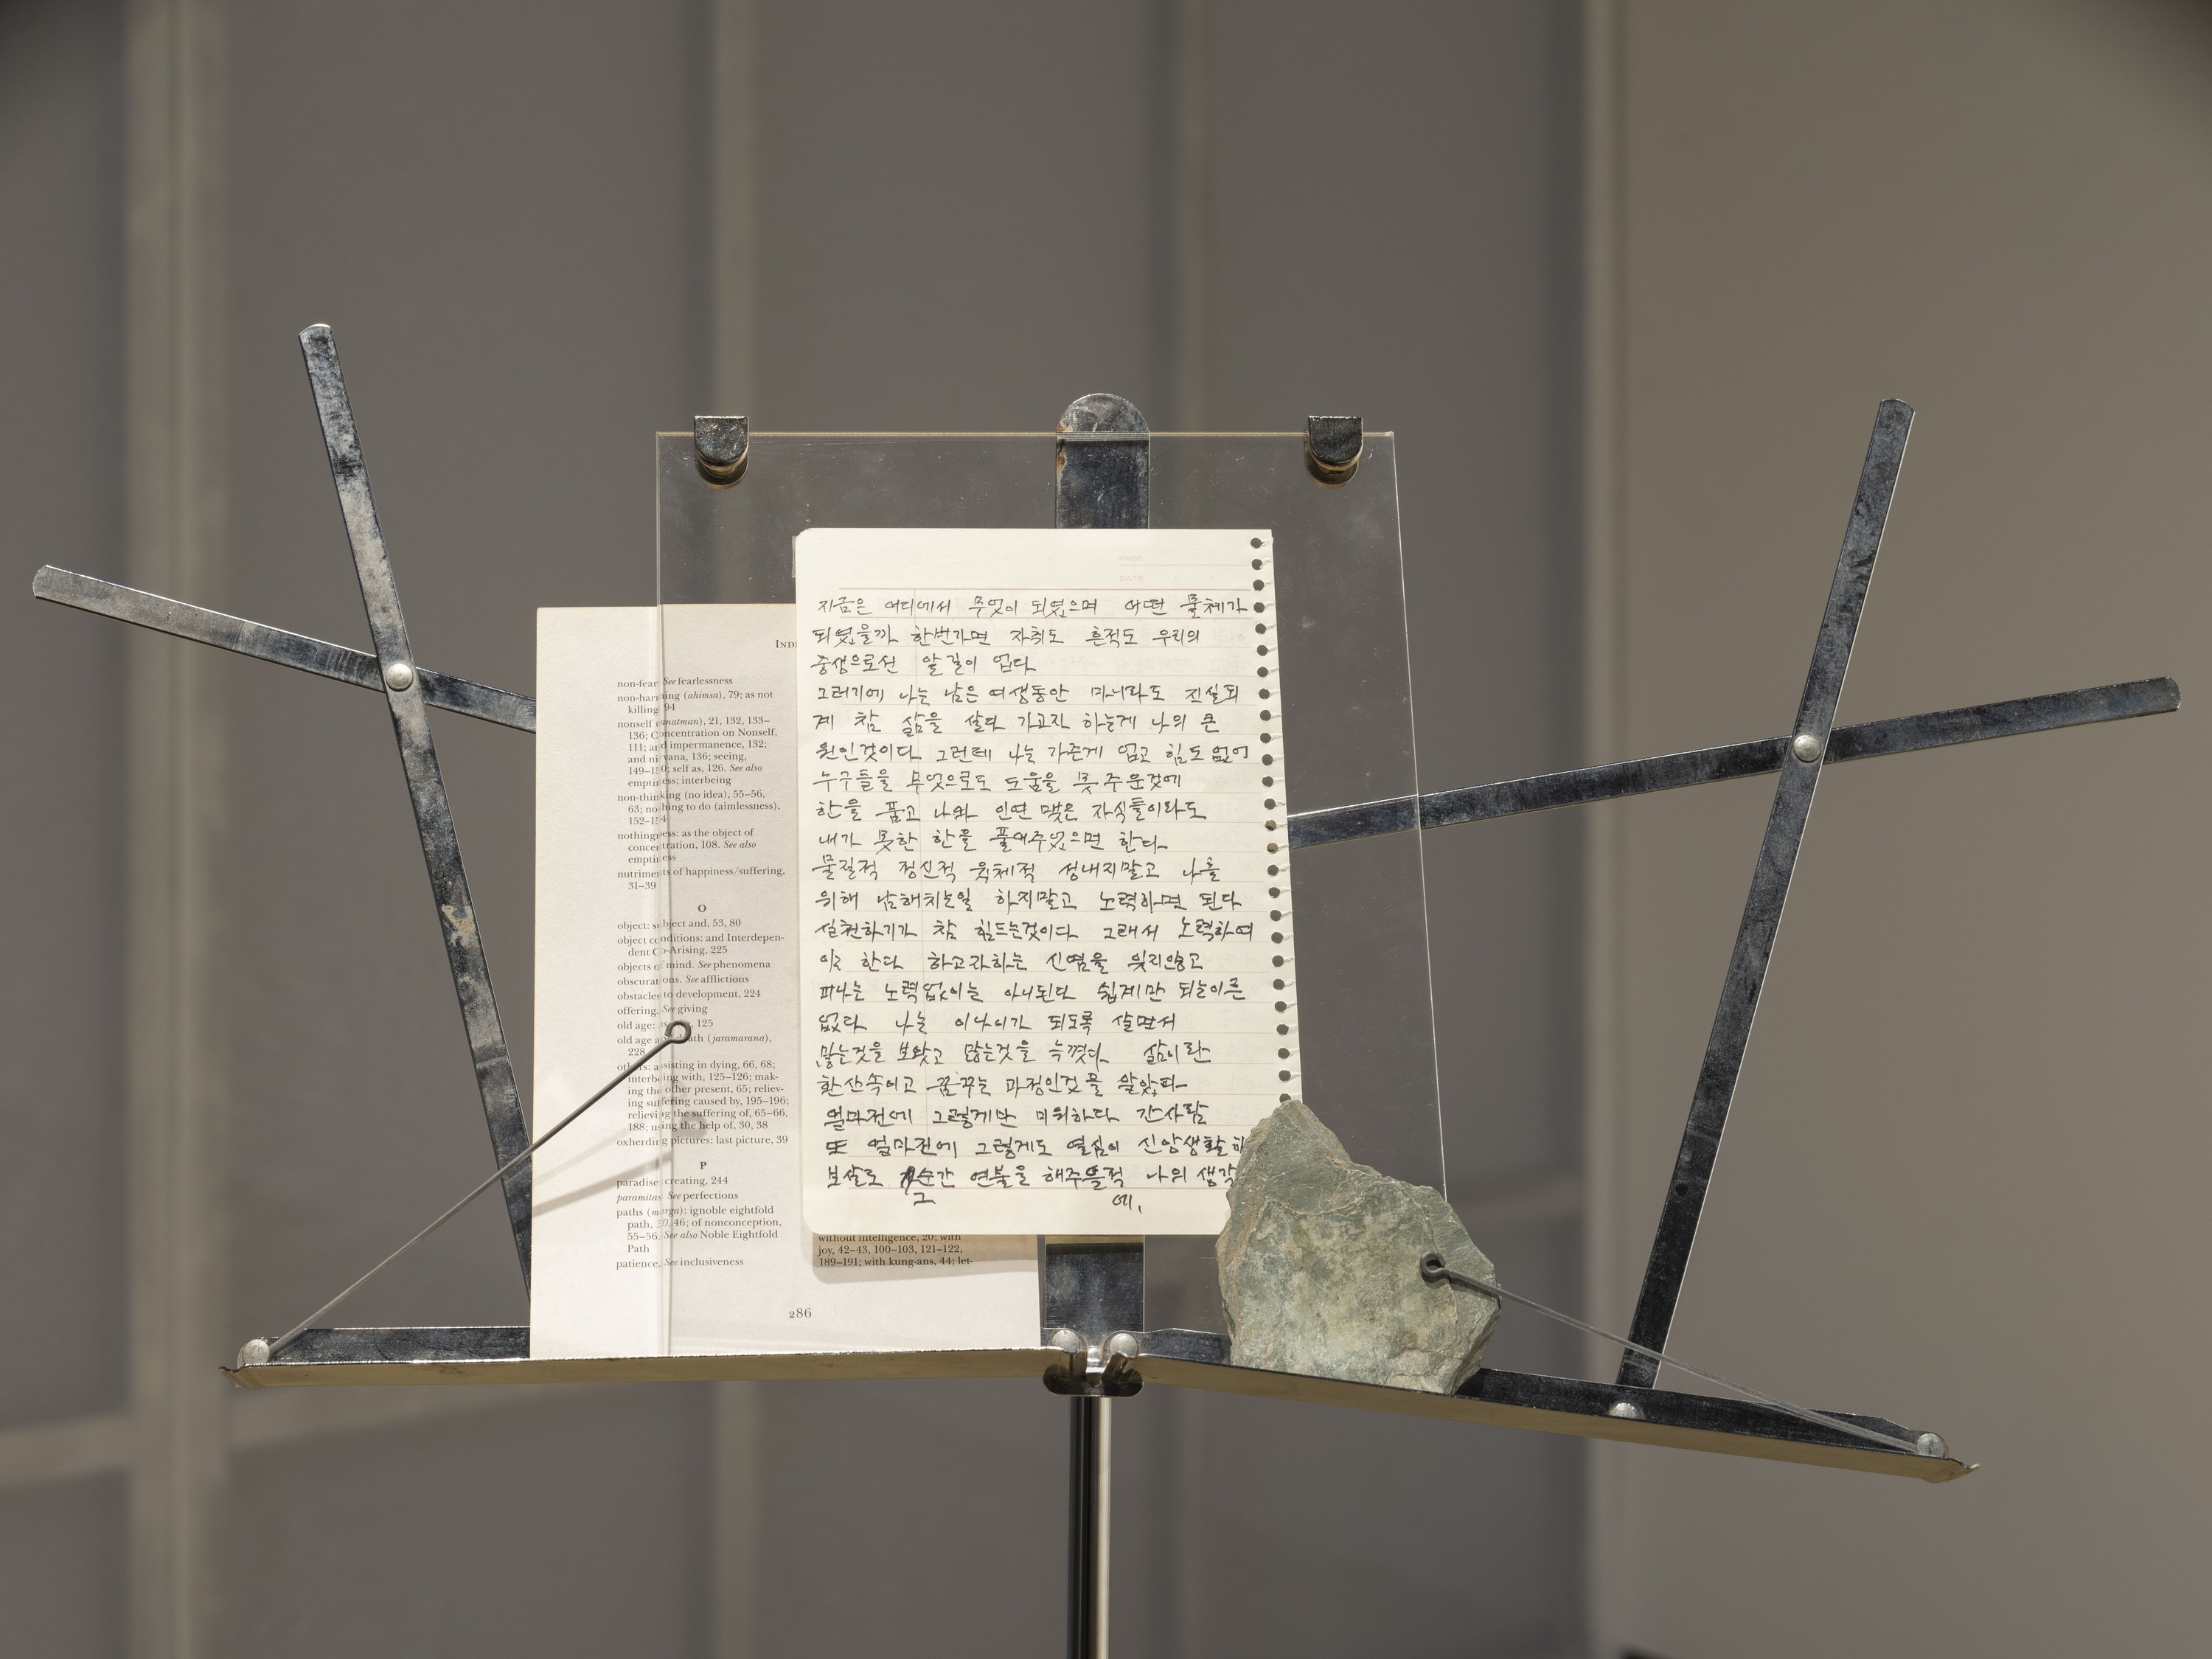 INDE
non-fear See fearlessness
non-harming (ahimsa), 79; as not
killing, 94
nonself (anatman), 21, 132, 133–
136; Concentration on Nonself,
111; and impermanence, 132;
and nirvana, 136; seeing,
149–150; self as, 126. See also
emptiness; interbeing
non-thinking (no idea), 55–56,
63; nothing to do (aimlessness),
152–154
nothingness: as the object of
concentration, 108. See also
emptiness
nutriments of happiness/suffering,
31–39
O
object: subject and, 53, 80
object conditions: and Interdepen-
dent Co-Arising, 225
objects of mind. See phenomena
obscurations. See afflictions
obstacles to development, 224
offering. See giving
old age: 125
old age and death (jaramarana),
228
others: assisting in dying, 66, 68;
interbeing with, 125–126; mak-
ing the other present, 65; reliev-
ing suffering caused by, 195–196;
relieving the suffering of, 65–66,
188; using the help of, 30, 38
oxherding pictures: last picture, 39
P
paradise: creating, 244
paramitas. See perfections
paths (marga): ignoble eightfold
path, 46; of nonconception,
55–56. See also Noble Eightfold
Path
patience. See inclusiveness
without intelligence, 20; with
joy, 42–43, 100–103, 121–122,
189–191; with kung-ans, 44; let-
286
PAGE
DATE
지금은 어디에서 무엇이 되였으며 어떤 물체가
되였을까 한번가면 자취도 흔적도 우리의
중생으로선 알길이 업다
그러기에 나는 남은 여생동안 마니라도 진실되
게 참 삶을 살다 가고자 하는게 나의 큰
원인것이다 그런데 나는 가준게 업고 힘도 없어
누구들을 무엇으로도 도움을 못주운것에
한을 품고 나와 인연 맺은 자식들이라도
내가 못한 한을 풀어주었으면 한다
물질적 정신적 육체적 성내지말고 나를
위해 남해치는일 하지말고 노력하면 된다
실천하기가 참 힘드는것이다 그래서 노력하여
야 한다 하고자하는 신념을 잊지안고
피나는 노력없이는 아니된다 쉽게만 되는이른
없다 나는 이나이가 되도록 살면서
많는것을 보왔고 많는것을 늑꼈다 삶이란
환산속이고 꿈꾸는 과정인것을 알았다
얼마전에 그렇게만 미워하다 간사람
또 얼마전에 그렇게도 열심이 신앙생활하
보살로 그순간 연불을 해주을적 나의 생각
에.